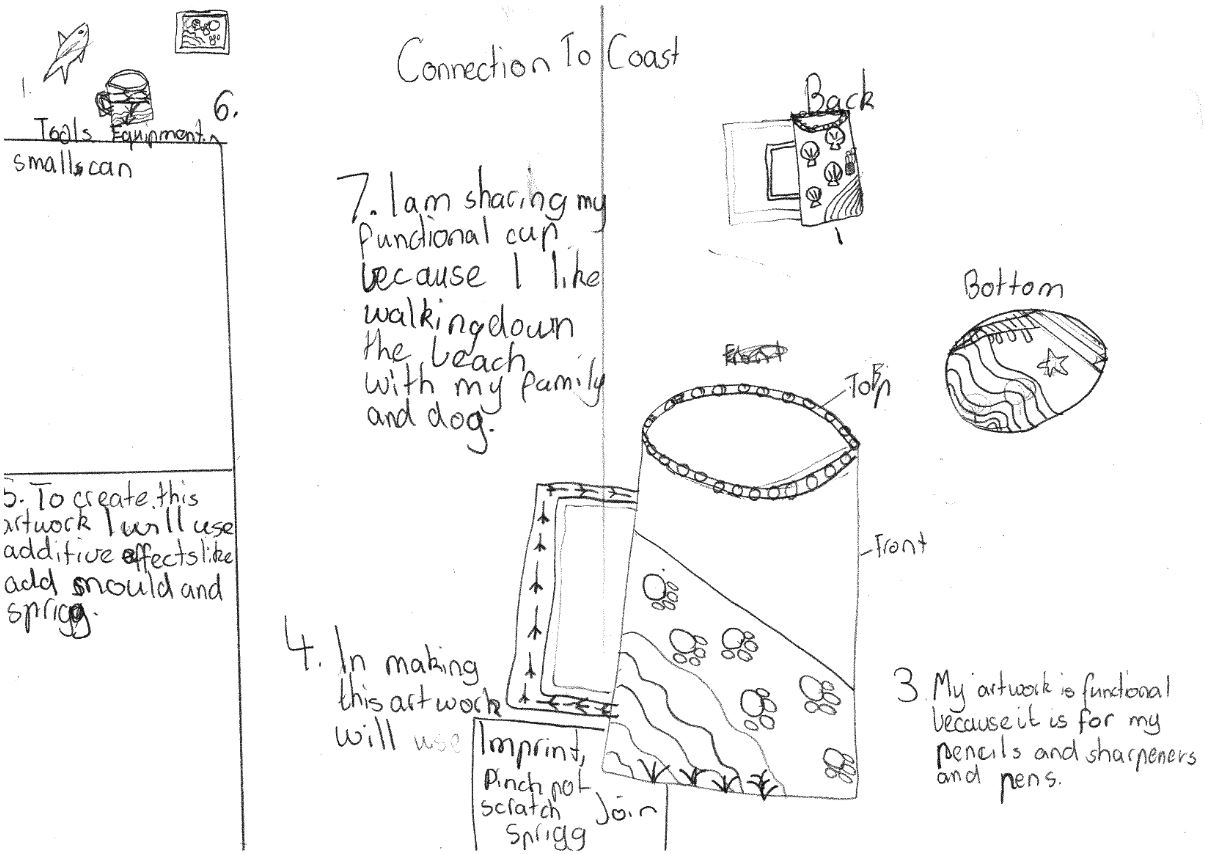 Connection To Coast
1.
6.
Tools Equipment
small can
5. To create this
artwork I will use
additive effects like
add mould and
sprigg.
7. I am sharing my
functional cup
because I like
walking down
the beach
with my family
and dog.
Back
Bottom
Front
Top
Front
4. In making
this artwork
will use
Imprint,
Pinch pot
scratch Join
Sprigg
3 My artwork is functional
because it is for my
pencils and sharpeners
and pens.